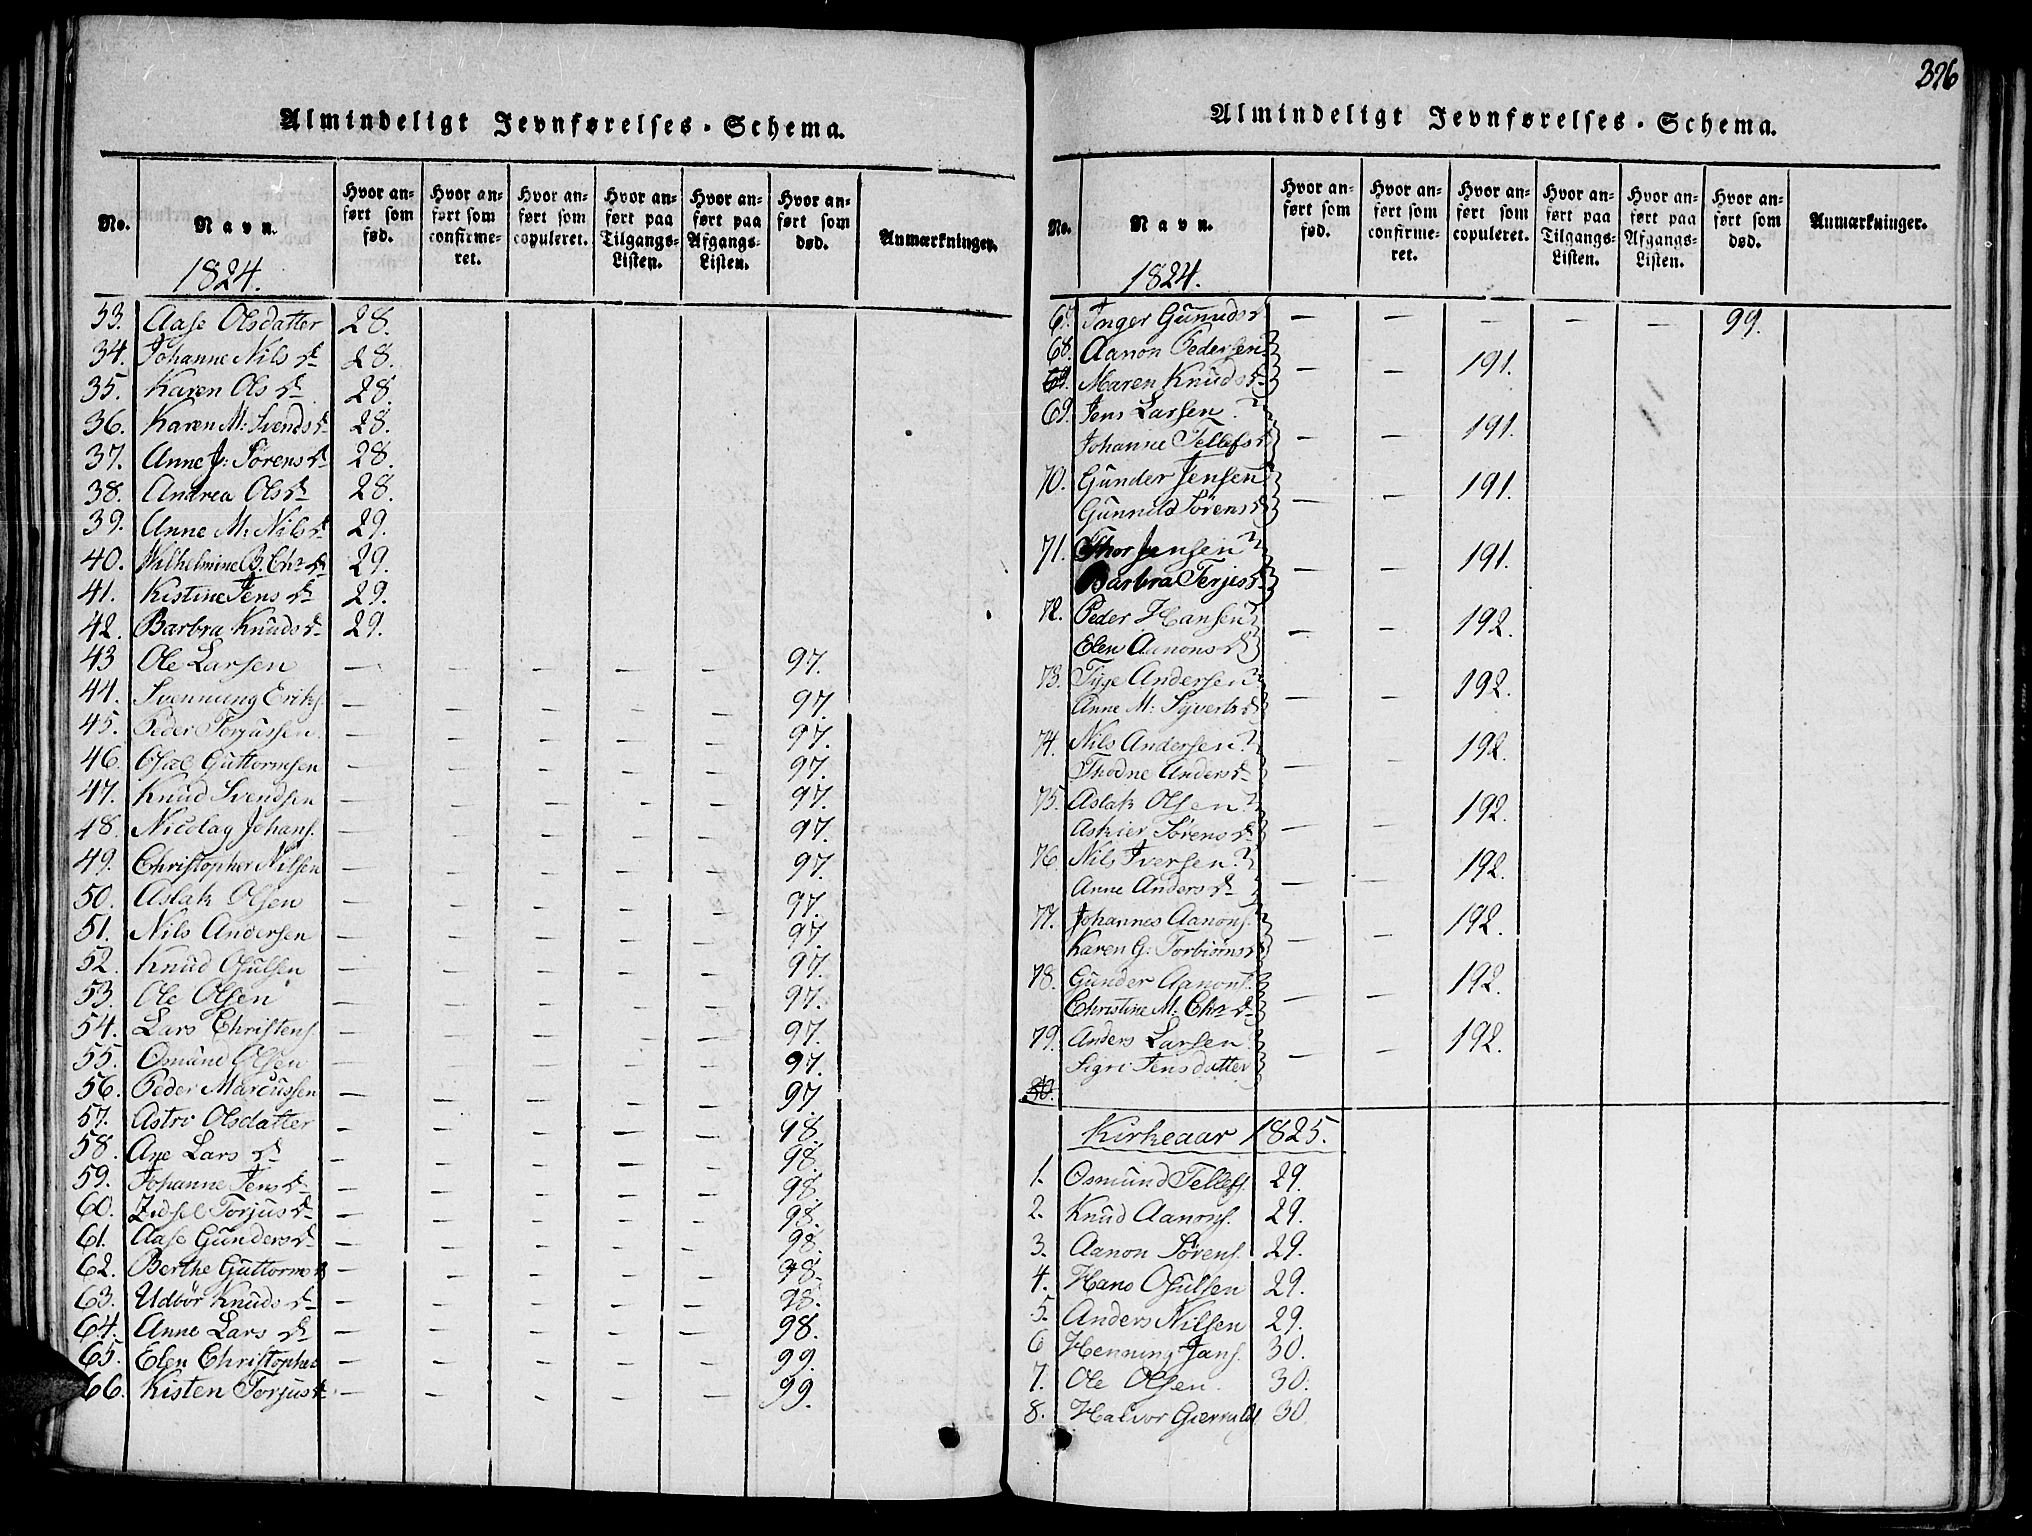 Almindeligt Jevnførelses-Schema.
No. Navn. Hvor anført som fød. Hvor anført som confirmeret. Hvor anført som copuleret. Hvor anført paa Tilgangs-Listen. Hvor anført paa Afgangs-Listen. Hvor anført som død. Anmærkninger.
1824.
33. Aase Olsdatter 28.
34. Johanne Nils dr 28.
35. Karen Ols dr 28.
36. Karen M: Svends dr 28.
37. Anne J: Sørens dr 28.
38. Andrea Ols dr 28.
39. Anne M: Nils dr 29.
40. Wilhelmine B. Chr dr 29.
41. Kistine Jens dr 29.
42. Barbra Knuds dr 29.
43 Ole Larsen — — — — — 97.
44. Svennung Eriks. — — — — — 97.
45. Peder Torjussen. — — — — — 97.
46. Osæl Guttormsen — — — — — 97.
47. Knud Svendsen — — — — — 97.
48. Nicolay Johans. — — — — — 97.
49. Christopher Nilsen — — — — — 97.
50. Aslak Olsen — — — — — 97.
51. Nils Andersen — — — — — 97.
52. Knud Osulsen — — — — — 97.
53. Ole Olsen — — — — — 97.
54. Lars Christens. — — — — — 97.
55. Osmund Olsen — — — — — 97.
56. Peder Marcussen — — — — — 97
57. Astri Olsdatter — — — — — 98.
58. Ane Lars dr — — — — — 98.
59. Johanne Jens dr — — — — — 98.
60. Zidsel Torjus dr — — — — — 98.
61. Aase Gunders dr — — — — — 98.
62. Berthe Guttorms dr — — — — — 98.
63. Udbør Knuds dr — — — — — 98.
64. Anne Lars dr — — — — — 98.
65. Elen Christophers — — — — — 99.
66. Kisten Torjus dr — — — — — 99.
326
Almindeligt Jevnførelses-Schema.
No. Navn. Hvor anført som fød. Hvor anført som confirmeret. Hvor anført som copuleret. Hvor anført paa Tilgangs-Listen. Hvor anført paa Afgangs-Listen. Hvor anført som død. Anmærkninger.
1824.
67. Inger Gunuds dr — — — — — 99.
68. Aanon Pedersen
69. Maren Knuds dr — — 191.
69. Jens Larsen
Johanne Tellefs dr — — 191.
70. Gunder Jensen
Gunnild Sørens dr — — 191.
71. Thor Jensen
Barbra Terjes dr — — 191.
72. Peder Hansen
Elen Aanons dr — — 192.
73. Tyge Andersen
Anne M: Syverts dr — — 192.
74. Nils Andersen
Thodne Anders dr — — 192.
75. Aslak Olsen
Askier Sørens dr — — 192.
76 Nils Iversen
Anne Anders dr — — 192.
77. Johannes Aanons.
Karen G: Torbiørns dr — — 192.
78. Gunder Aanons.
Christine M. Chr dr — — 192.
79. Anders Larsen
Sigri Jensdatter — — 192.
80.
Kirkeaar 1825.
1. Osmund Tellefs. 29.
2. Knud Aanons. 29.
3. Aanon Sørens. 29.
4. Hans Osulsen 29.
5. Anders Nilsen 29.
6 Henning Jans. 30.
7. Ole Olsen. 30.
8. Halvor 30.